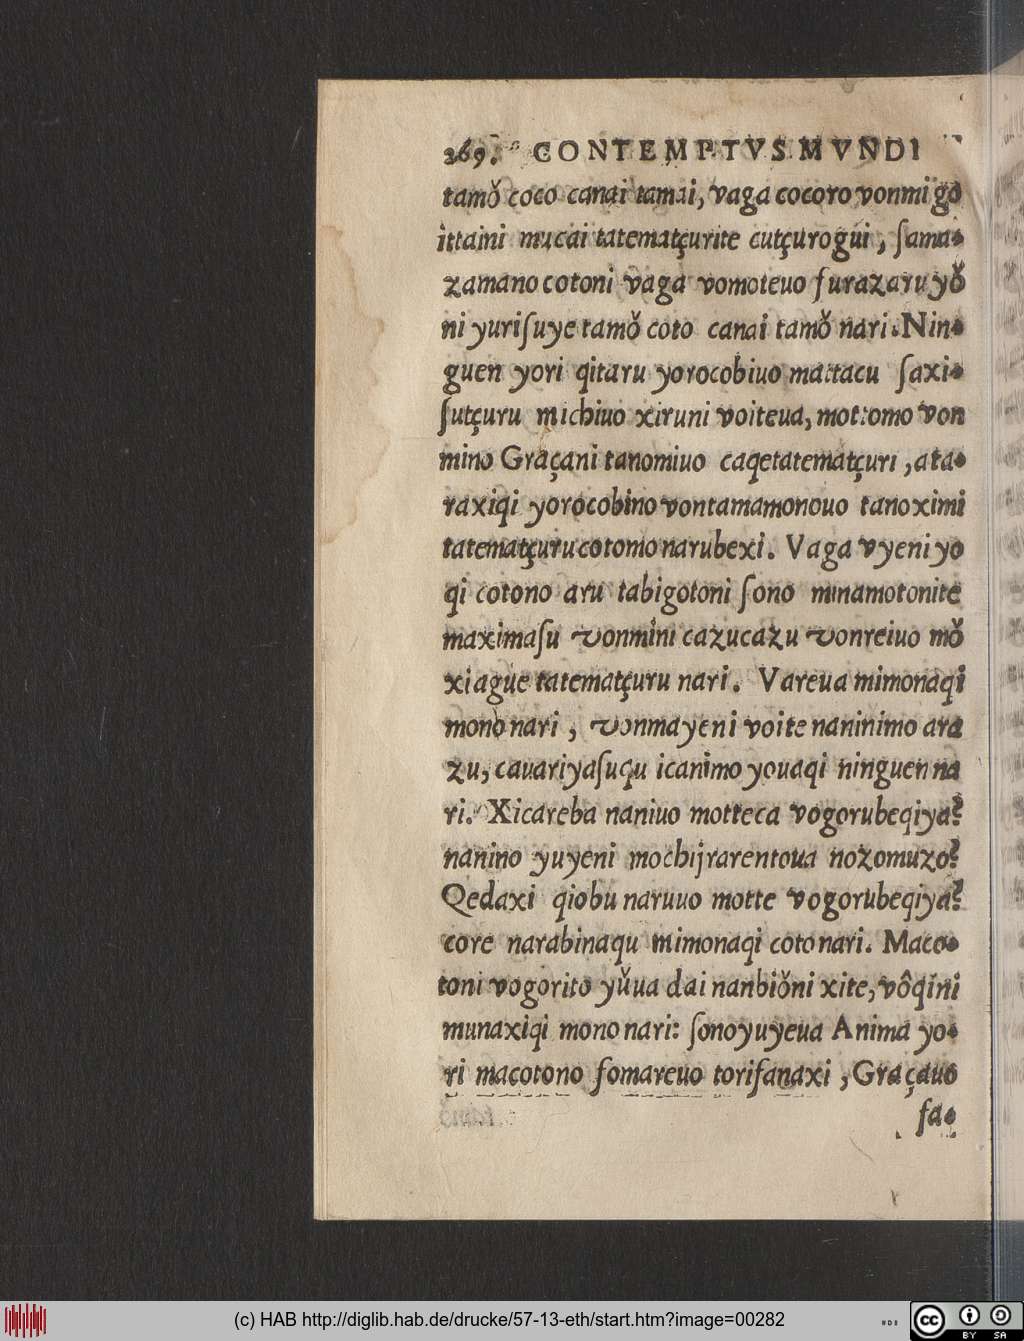 269. CONTEMPTVS MVNDI
tamǒ coco canai tamai, vaga cocoro vonmi go
ittaini mucai tatematçurite cutçurogui, ſama-
zamano cotoni vaga vomoteuo furazaru yǒ
ni yuriſuye tamǒ coto canai tamǒ nari. Nin-
guen yori qitaru yorocobiuo mattacu ſaxi-
ſutçuru michiuo xiruni voiteua, mottomo von
mino Graçani tanomiuo caqetatematçuri, ata-
raxiqi yorocobino vontamamonouo tanoximi
tatematçuru cotomo narubexi. Vaga vyeni yo
qi cotono aru tabigotoni ſono minamotonite
maximaſu vonmini cazucazu vonreiuo mǒ
xiague tatematçuru nari. Vareua mimonaqi
mono nari, vonmayeni voite naninimo ara
zu, cauariyaſuqu icanimo youaqi ninguen na
ri. Xicareba naniuo motteca vogorubeqiya?
nanino yuyeni mochijrarentoua nozomuzo?
Qedaxi qiobu naruuo motte vogorubeqiya?
core narabinaqu mimonaqi coto nari. Maco-
toni vogorito yǔua dai nanbiǒni xite, vôqini
munaxiqi mono nari: ſonoyuyeua Anima yo-
ri macotono fomareuo torifanaxi, Graçauo
fa-
(c) HAB http://diglib.hab.de/drucke/57-13-eth/start.htm?image=00282
cc
BY SA